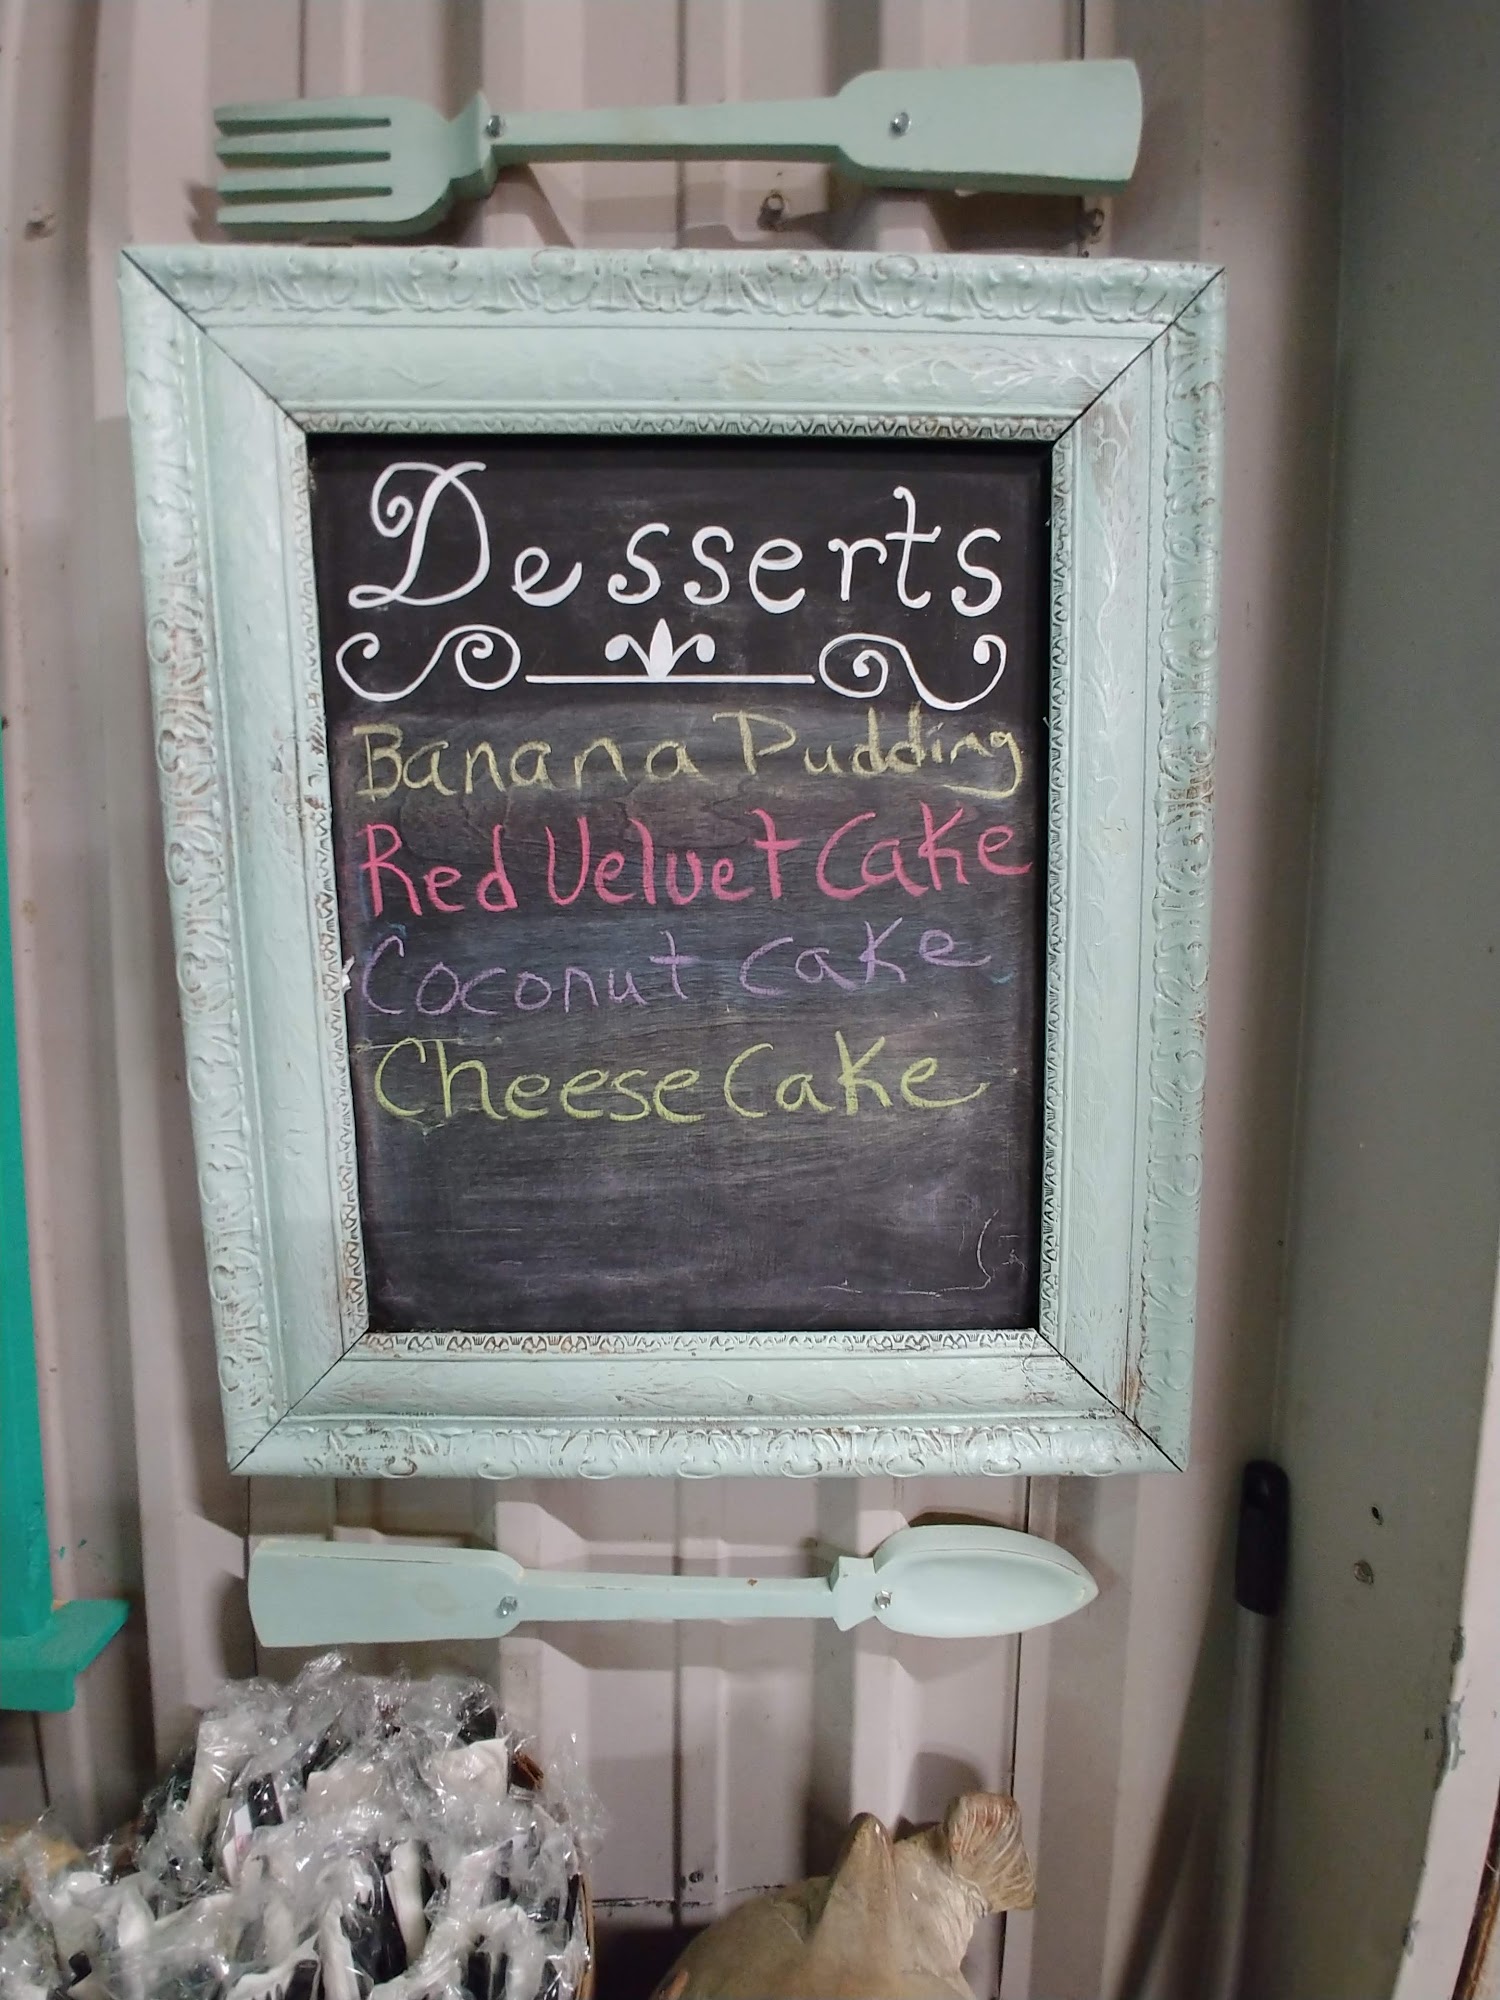 Desserts
Banana Pudding
Red Velvet Cake
Coconut cake
Cheese Cake